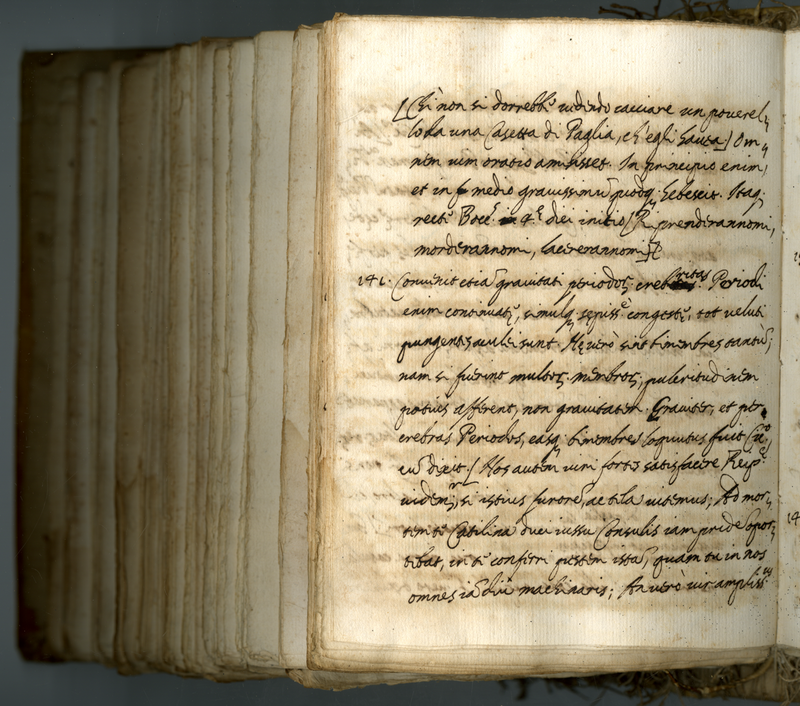 [Chi non si dorrebbe uidendo cacciare un pouerel
lo da una Casetta di Paglia, ch'egli hauea.] Om
nem uim oratio amisisset. In principio enim,
et in medio grauissimũ quodq; hebescit. Itaq;
recte Bocc. in 4.e diei initio [Ri prenderannomi,
morderannomi, lacererannomi]
141. Conuenit etiã grauitati periodoꝝ crebritas. Periodi
enim continuatę, simulq; sępissẽ congestę, tot ueluti
pungentes aculei sunt. Hę uerò sint bimembres tantũ;
nam si fuerint multoꝝ membroꝝ, pulcritudinem
potius afferent, non grauitatem. Grauiter, et per
crebras Periodos, easq; bimembres loquutus fuit Cic.o
cũ dixit. [Nos autem uiri fortes satisfacere Reip.ę
uidemur, si istius furorẽ, ac tela uitemus; Ad mor
tem te Catilina duci iussu Consulis iam pridẽ opor
tebat, in te conferri pestem istã, quam tu in nos
omnes iã diũ machinaris; An uerò uir amplissus